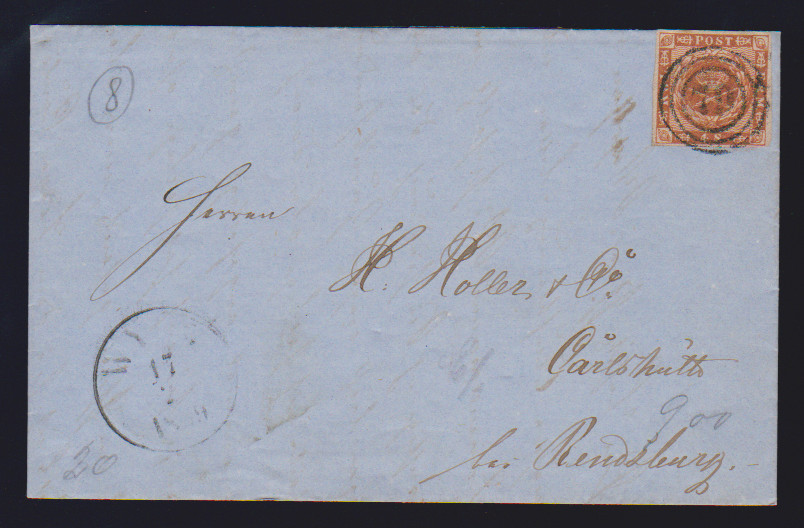 8
POST
Herren
H. Holler & Co.
Carlshütte
17
900
bei Rendsburg.
20